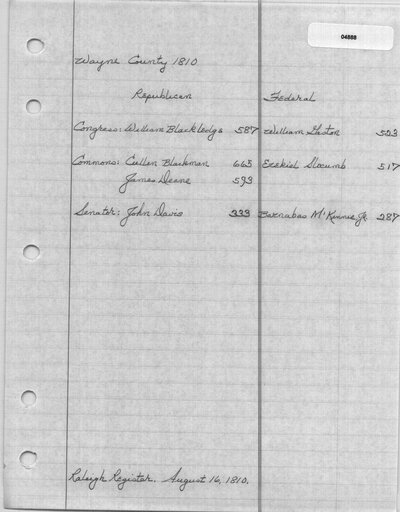 04888
Wayne County 1810
Republican Federal
Congress: William Blackledge 587 William Gaston 523
Commons: Cullen Blackman 665 Ezekiel Slocumb 517
James Deane 593
Senator: John Davis 333 Barnabas McKinnie Jr. 287
Raleigh Register. August 16, 1810.